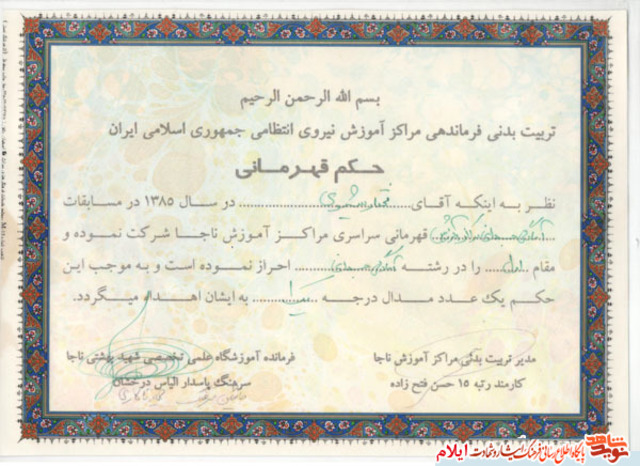 بسم الله الرحمن الرحیم
تربیت بدنی فرماندهی مراکز آموزش نیروی انتظامی جمهوری اسلامی ایران
حکم قهرمانی
نظر به اینکه آقای .......... در سال ۱۳۸۵ در مسابقات
قهرمانی سراسری مراکز آموزش ناجا شرکت نموده و
مقام اول را در رشته آمادگی جسمانی احراز نموده است و به موجب این
حکم یک عدد مدال درجه .......... به ایشان اهداء میگردد.
مدیر تربیت بدنی مراکز آموزش ناجا
کارمند رتبه ۱۵ حسن فتح زاده
فرمانده آموزشگاه علمی تخصصی شهید بهشتی ناجا
سرهنگ پاسدار الیاس درخشان
نوید شاهد
پایگاه اطلاع رسانی فرهنگ ایثار و شهادت ایلام